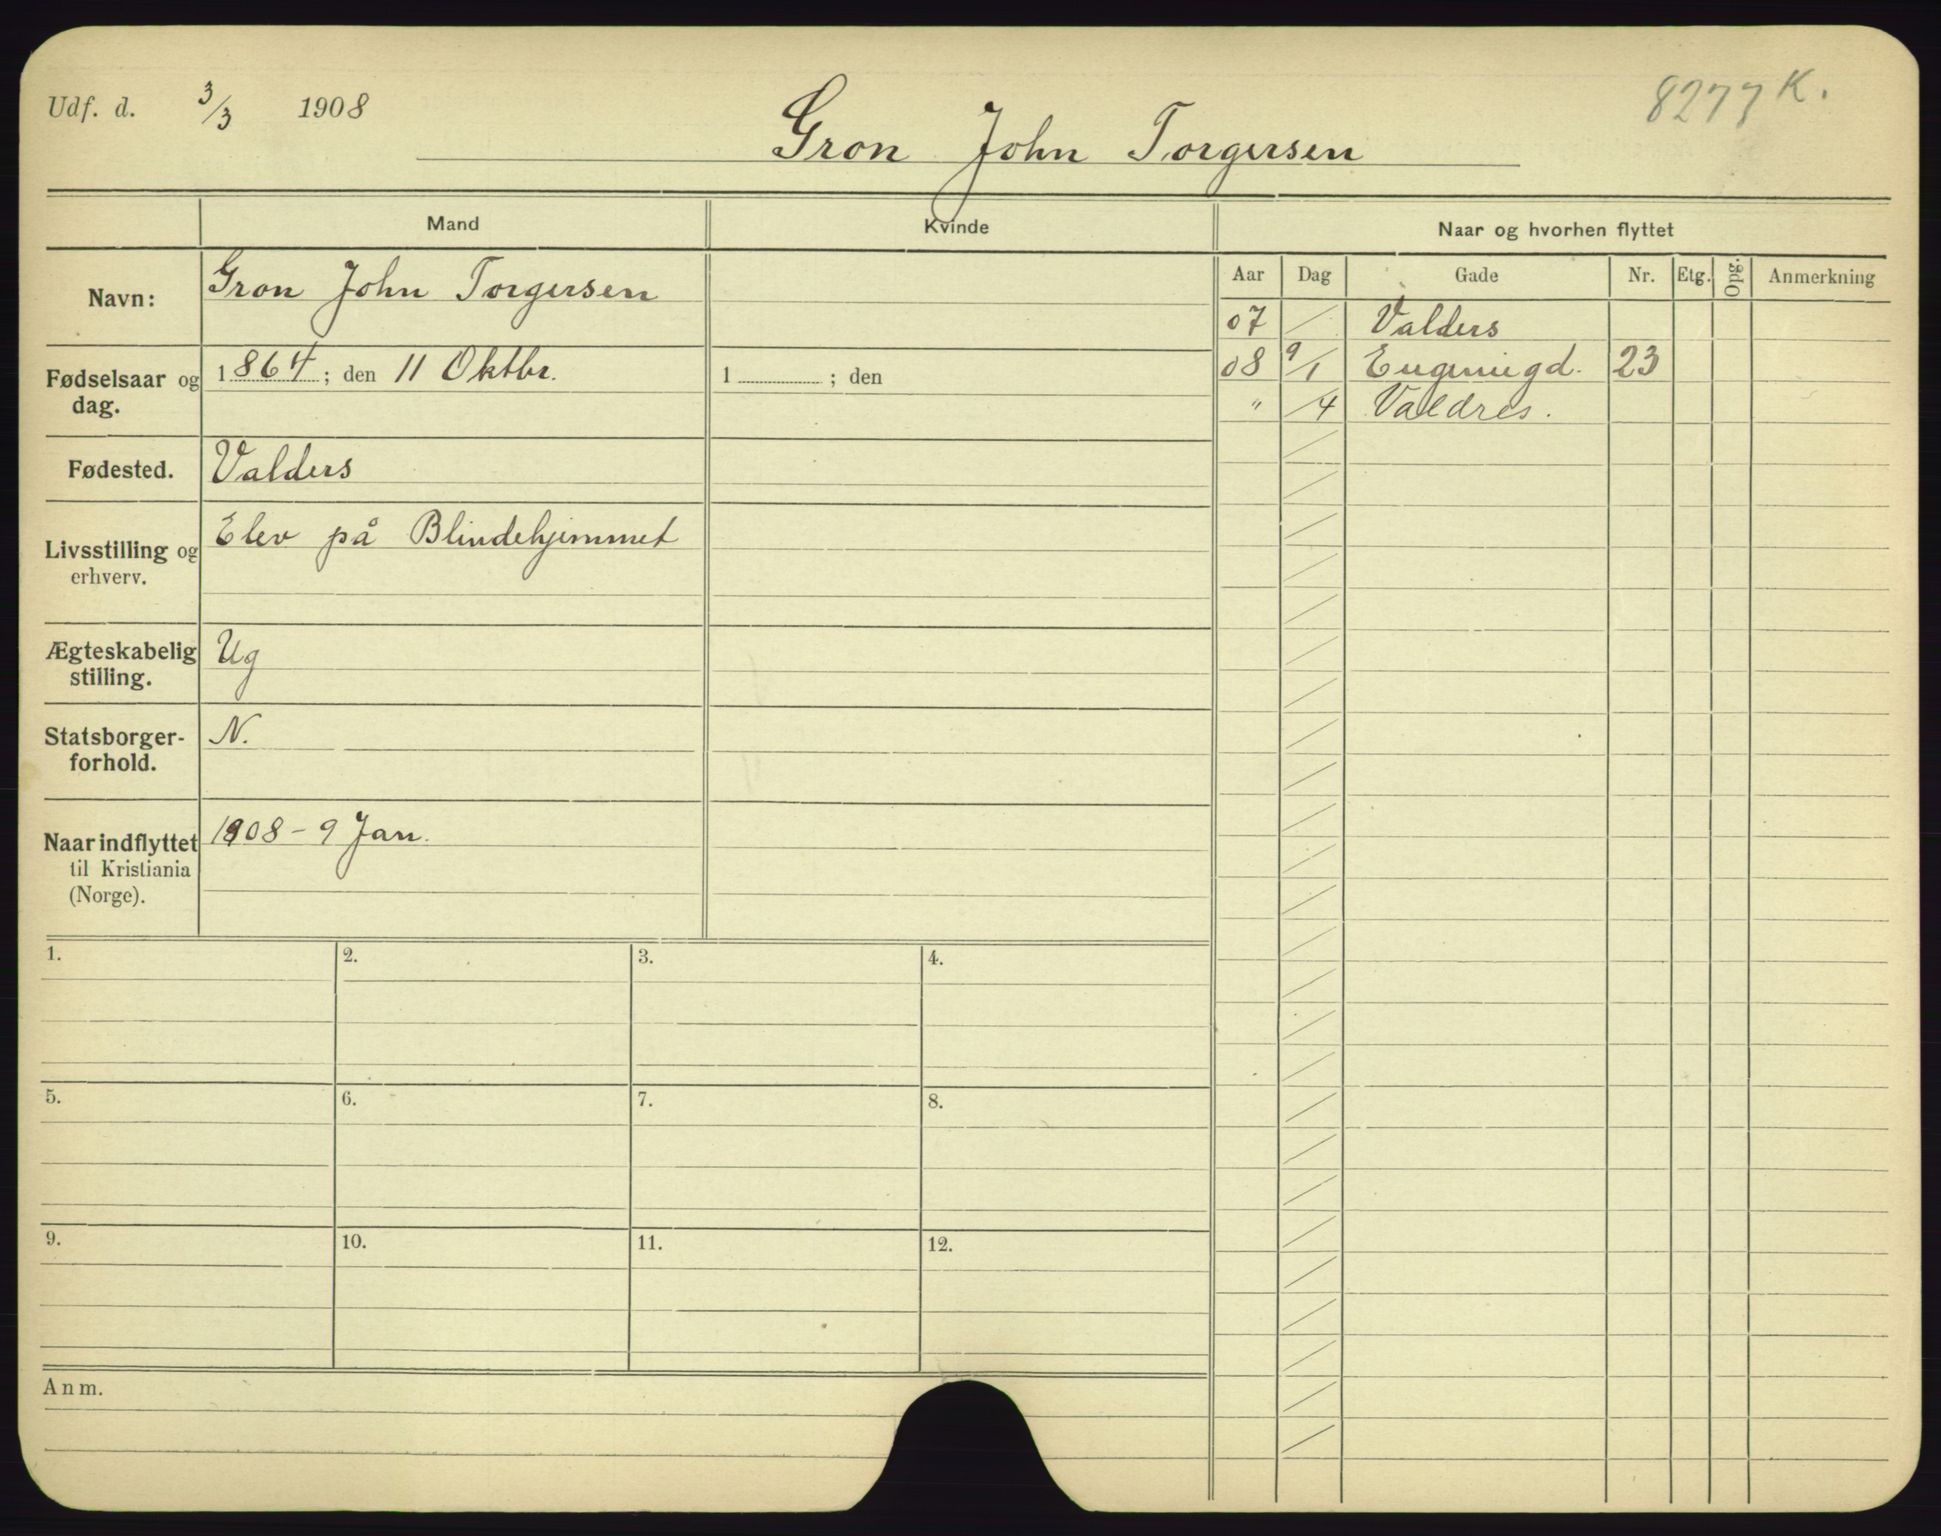 Udf. d. 3/3 1908
8277 K.
Gron John Torgersen
Mand
Kvinde
Naar og hvorhen flyttet
Navn: Gron John Torgersen
Fødselsaar og dag. 1864; den 11 Oktbr.
1 ; den
Fødested. Valders
Livsstilling og erhverv. Elev på Blindehjemmet
Ægteskabelig stilling. Ug
Statsborgerforhold. N.
Naar indflyttet til Kristiania (Norge). 1908 – 9 Jan.
Aar Dag Gade Nr. Etg. Opg. Anmerkning
07 / Valders
08 9/1 Eugeniegd. 23
" /4 Valdres.
1. 2. 3. 4.
5. 6. 7. 8.
9. 10. 11. 12.
Anm.